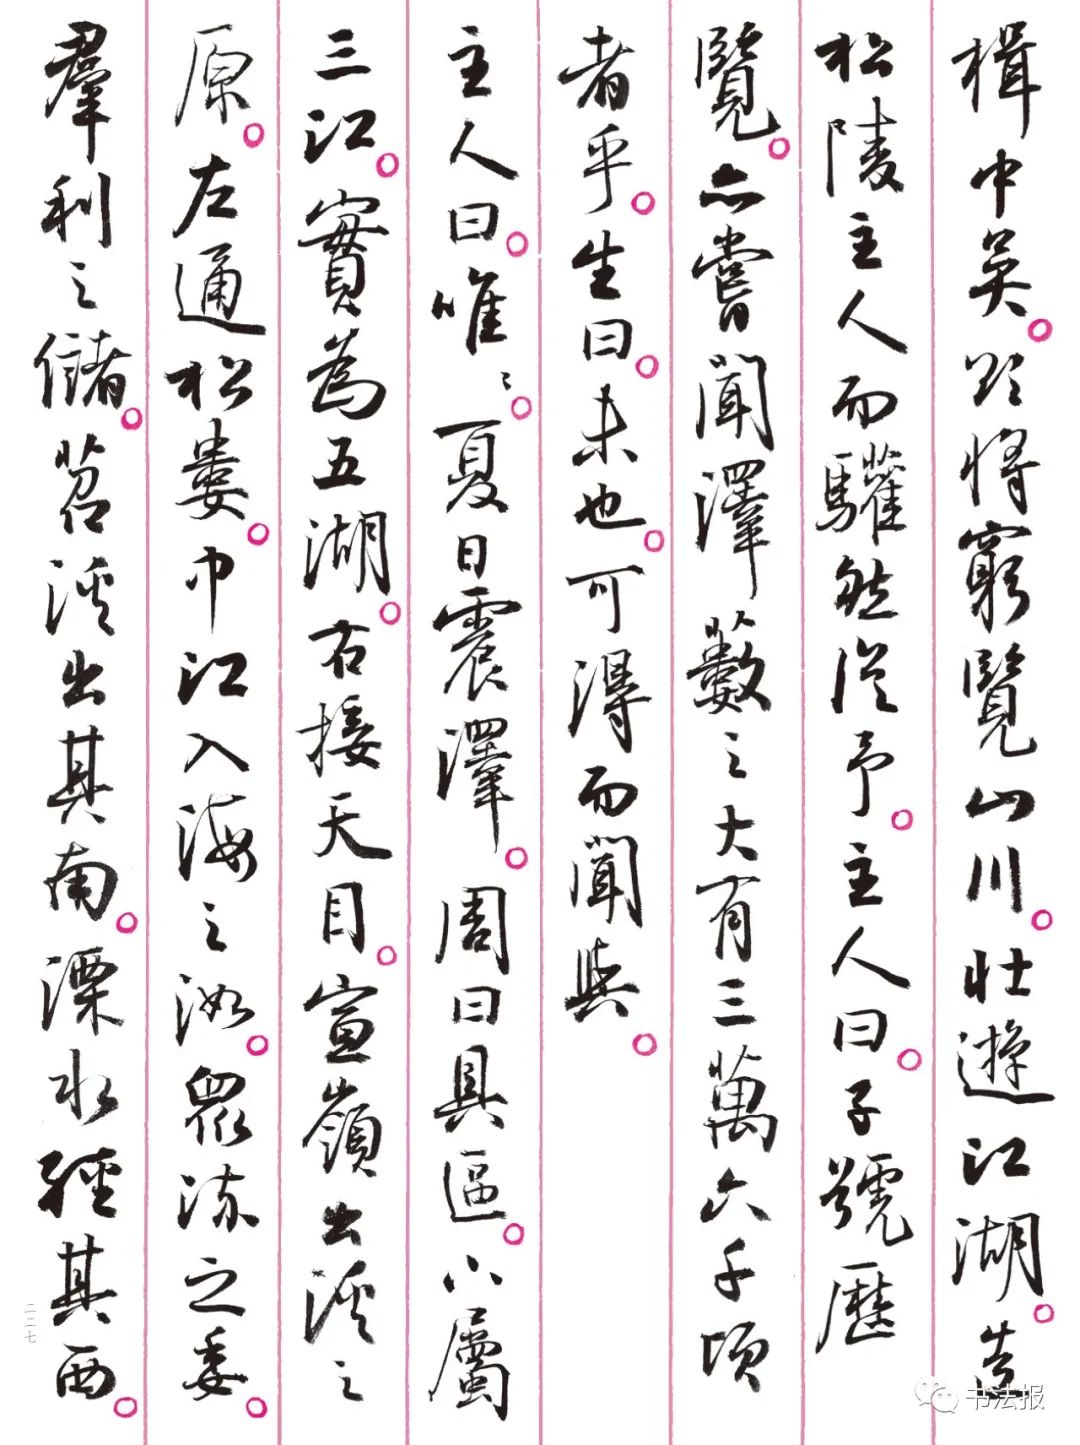 楫中吳。將窮覽山川。壯遊江湖。造
松陵主人而驩然從予。主人曰。子號歷
覽。亦嘗聞澤藪之大有三萬六千頃
者乎。生曰。未也。可得而聞與。
主人曰。唯々。夏曰震澤。周曰具區。以屬
三江。實為五湖。右接天目。宣嶺出溪之
原。左通松婁。中江入海之。眾流之委。
羣利之儲。苕溪出其南。溧水經其西。
二二七
书法报